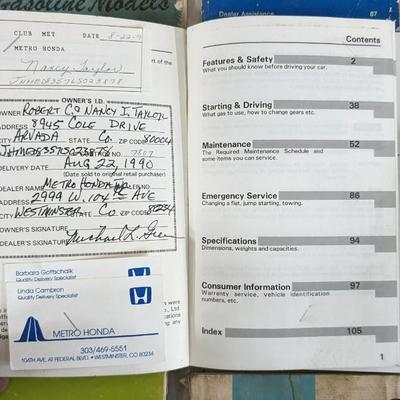 Gasoline Models
Dealer Assistance 87
CLUB MET DATE 8-22-9
METRO HONDA
Nancy Taylor
JHMED8357LS023878
rt of the
OWNER'S I.D.
OWNER ROBERT C. & NANCY I. TAYLOR
ADDRESS 8945 COLE DRIVE
CITY ARVADA STATE CO. ZIP CODE 80004
JHMED8357LS023878
DELIVERY DATE AUG 22, 1990
(Date sold to original retail purchaser)
DEALER NAME METRO HONDA DEALER NO.
ADDRESS 2999 W. 104th AVE
CITY WESTMINSTER STATE CO. ZIP CODE 80234
OWNER'S SIGNATURE
DEALER'S SIGNATURE
Barbara Gottschalk
Quality Delivery Specialist
Linda Cambron
Quality Delivery Specialist
METRO HONDA
303/469-5551
104TH AVE. AT FEDERAL BLVD. • WESTMINSTER, CO 80234
were
o., Ltd.
ications
g any
Contents
Features & Safety 2
What you should know before driving your car.
Starting & Driving 38
What gas to use, how to change gears etc.
Maintenance 52
The Required Maintenance Schedule and
some items you can service.
Emergency Service 86
Changing a flat, jump starting, towing.
Specifications 94
Dimensions, weights and capacities.
Consumer Information 97
Warranty service, vehicle identification
numbers, etc.
Index 105
1